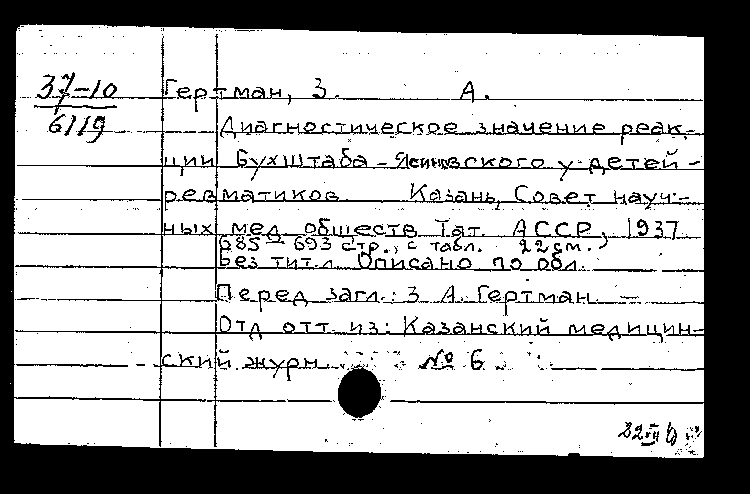 37-10
6119
Гертман, З. А.
Диагностическое значение реак-
ции Бухштаба-Ясиновского у детей-
ревматиков. Казань, Совет науч-
ных мед. обществ Тат. АССР, 1937.
685-693 стр., с табл. 22 см.)
Без тит. л. Описано по обл.
Перед загл.: З. А. Гертман. —
Отд. отт. из: Казанский медицин-
ский журн. № 6